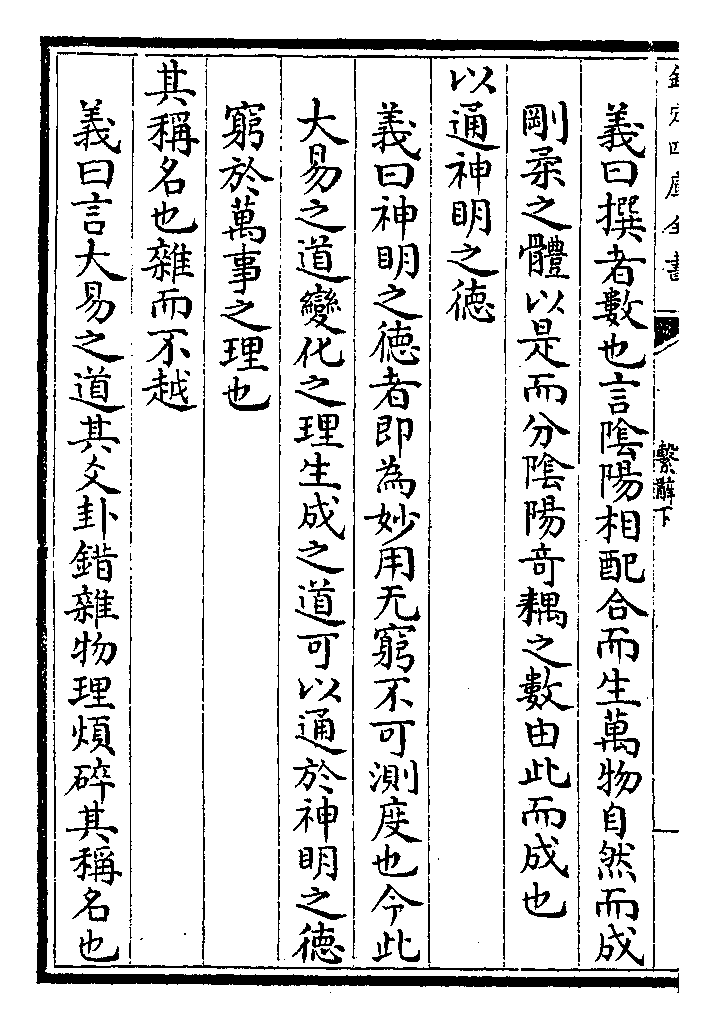 欽定四庫全書
繫辭下
義曰撰者數也言陰陽相配合而生萬物自然而成
剛柔之體以是而分陰陽竒耦之數由此而成也
以通神明之徳
義曰神明之徳者即為妙用无窮不可測度也今此
大易之道變化之理生成之道可以通於神明之徳
窮於萬事之理也
其稱名也雜而不越
義曰言大易之道其爻卦錯雜物理煩碎其稱名也